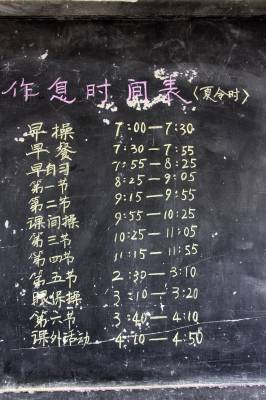 作息时间表〈夏令时〉
早操 7:00—7:30
早餐 7:30—7:55
早自习 7:55—8:25
第一节 8:25—9:05
第二节 9:15—9:55
课间操 9:55—10:25
第三节 10:25—11:05
第四节 11:15—11:55
第五节 2:30—3:10
眼保操 3:10—3:20
第六节 3:40—4:10
课外活动 4:10—4:50